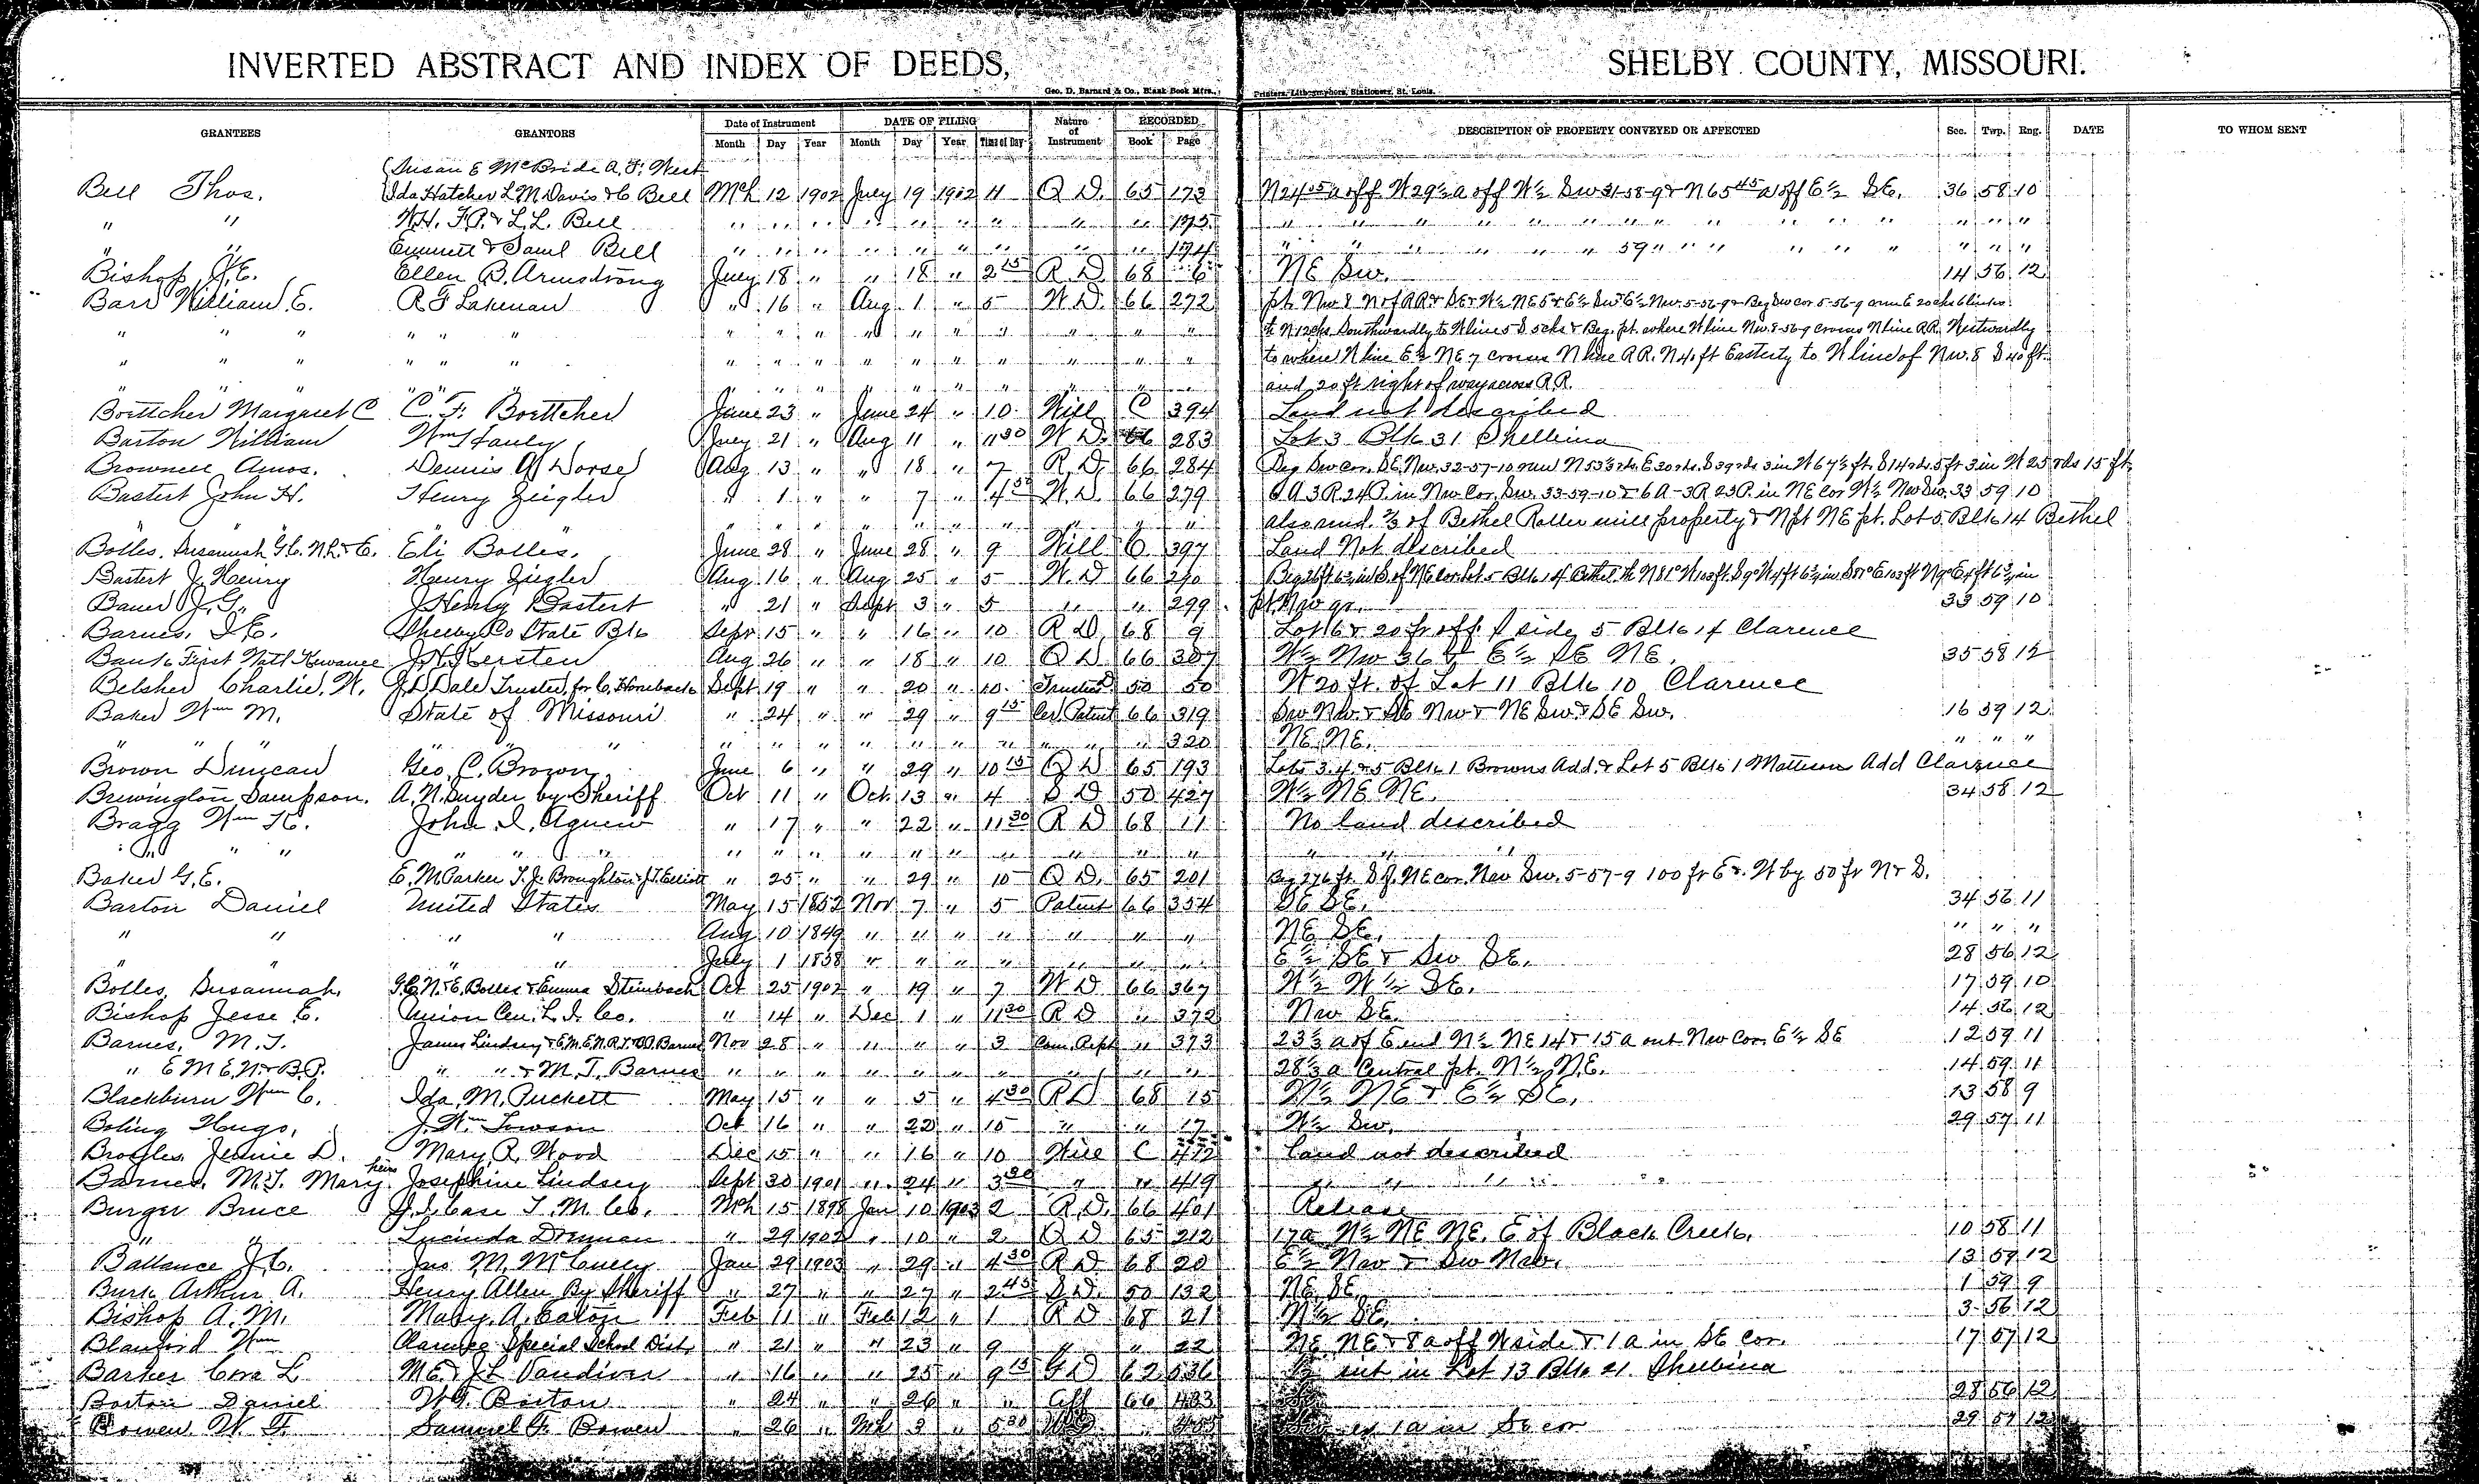 INVERTED ABSTRACT AND INDEX OF DEEDS, SHELBY COUNTY, MISSOURI.
Geo. D. Barnard & Co., Blank Book Mfrs., Printers, Lithographers, Stationers, St. Louis.
GRANTEES GRANTORS Date of Instrument DATE OF FILING Nature of Instrument RECORDED DESCRIPTION OF PROPERTY CONVEYED OR AFFECTED Sec. Twp. Rng. DATE TO WHOM SENT
Month Day Year Month Day Year Time of Day Book Page
Susan E McBride A. F. West
Bell Thos. Ida Hatcher L. M. Davis & C Bell Mch 12 1902 July 19 1902 11 Q D. 65 173 N 24 05 a off W 29½ a off W½ Sw 31-58-9 & N 65 45 a off E½ SE. 36 58 10
" " W.H. F.P. & L.L. Bell " " " " " " " " " 175 " " " " " " " " " "
" " Emmett & Saml Bell " " " " " " " " " 174 " " " " " 59 " " " " " " " " "
Bishop J.E. Ellen B. Armstrong July 18 " " 18 " 2 15 R D. 68 6 NE Sw. 14 56 12
Barr William E. R F Lakenan " 16 " Aug. 1 " 5 W D. 66 272 pt. Nw 8 N of RR & SE & W½ NE 5 & E½ Sw & E½ Nw. 5-56-9 & Beg Sw cor 5-56-9 run E 20 chs 6 links
" " " " " " " " " " " " " " " " " N 12 chs. Southwardly to W line 5 S 5 chs & Beg. pt. where W line Nw. 8-56-9 crosses N line RR. Westwardly
" " " " " " " " " " " " " " " " " to where W line E½ NE 7 crosses N line RR. N 40 ft Easterly to W line of Nw. 8 S 40 ft.
" " " " " " " " " " " " " " " " and 20 ft right of way across R.R.
Boettcher Margaret C C. F. Boettcher June 23 " June 24 " 10 Will C 394 Land not described
Barton William Wm Hanly July 21 " Aug 11 " 11 30 W D. 66 283 Lot 3 Blk 31 Shelbina
Brownell Amos. Dennis A Dorsey Aug. 13 " " 18 " 7 R. D. 66 284 Beg Sw Cor. SE Nw. 32-57-10 run N 53½ rds. E 20 rds. S 39 rds 3 in W 67½ ft. S 14 rds. 5 ft 3 in W 25 rds 15 ft
Bastert John H. Henry Zeigler " 1 " " 7 " 4 30 W. D. 66 279 A 3 R 24 P. in Nw Cor. Sw. 33-59-10 & 6 A-3R 23 P. in NE cor W½ Nw Sw. 33 59 10
" " " " " " " " " also und. ⅔ of Bethel Roller mill property & N pt NE pt. Lot 5 Blk 14 Bethel
Bolles, Susannah G.C. N.L. & E. Eli Bolles. June 28 " June 28 " 9 Will C. 397 Land Not described
Bastert J. Henry Henry Zeigler Aug 16 " Aug 25 " 5 W. D 66 290 Beg 26 ft 6½ in S of NE cor Lot 5 Blk 14 Bethel
Bauer J. G. J Henry Bastert " 21 " Sept 3 " 5 " " 299 pt. Nw qr. 33 59 10
Barnes, I E. Shelby Co State Bk Sept 15 " " 16 " 10 R D. 68 9 Lot 6 & 20 ft off side 5 Blk 14 Clarence
Bank First Natl Kewanee J. H. Kersten Aug 26 " " 18 " 10 Q D 66 307 W½ Nw 36 & E½ SE NE. 35 58 12
Belsher Charlie W. J L Dale Trustee for C. Hornback Sept 19 " " 20 " 10 Trustee D 50 50 W 20 ft. of Lot 11 Blk 10 Clarence
Baker Wm M. State of Missouri " 24 " " 29 " 9 15 Cer. Patent 66 319 Sw Nw & SE Nw & NE Sw & SE Sw. 16 59 12
" " " " " " " " " " " " " " " 320 NE NE. " " "
Brown Duncan Geo. C. Brown June 6 " " 29 " 10 15 Q D 65 193 Lots 3. 4 & 5 Blk 1 Browns Add. & Lot 5 Blk 1 Mattison Add Clarence
Brewington Sampson. A. N. Snyder by Sheriff Oct 11 " Oct. 13 " 4 S D 50 427 W½ NE NE. 34 58 12
Bragg Wm H. John I. Agnew " 17 " " 22 " 11 30 R D 68 11 No land described
" " " " " " " " " " " " " " " " " " "
Baker G. E. E. M Parker T. J. Broughton J T Elliott " 25 " " 29 " 10 Q D. 65 201 Beg 276 ft. S of NE cor. Nw Sw. 5-57-9 100 ft E & W by 50 ft N & S.
Barton Daniel United States May 15 1852 Nov 7 " 5 Patent 66 354 SE SE. 34 56 11
" " " " Aug 10 1849 " " " " " " " NE SE. " " "
" " " " July 1 1858 " " " " " " " E½ SE & Sw SE. 28 56 12
Bolles, Susannah. G.C. N. & E. Bolles & Emma Steinbach Oct 25 1902 " 19 " 7 W D 66 367 W½ W½ SE. 17 59 10
Bishop Jesse E. Union Cen. L. I. Co. " 14 " Dec 1 " 11 30 R D " 372 Nw SE. 14 56 12
Barnes, M. T. James Lindsey & E.M. E.N. R.T. & B.P. Barnes Nov 28 " " " " 3 Com. Rept " 373 23⅓ a of E end N½ NE 14 & 15 a out Nw Cor. E½ SE 12 59 11
" E M E. N. & B. P. " " & M. T. Barnes " " " " " " " " " " 28⅓ a Central pt. N½ NE. 14 59 11
Blackburn Wm C. Ida. M. Puckett May 15 " " 5 " 4 30 R D 68 15 N½ NE & E½ SE. 13 58 9
Boling Hugo, J. Wm Towson Oct 16 " " 22 " 10 " " 17 W½ Sw. 29 57 11
Broyles, Jennie D. Mary R. Wood Dec 15 " " 16 " 10 Will C 412 Land not described
Barnes, M. T. Mary heirs Josephine Lindsey Sept 30 1901 " 24 " 3 30 " " 419 " " " "
Burger Bruce J. I. Case T. M. Co. Mch 15 1898 Jan 10 1903 2 R. D. 66 401 Release
" " Lucinda Drennan " 29 1902 " 10 " 2 Q D 65 212 17a W½ NE NE. E of Black Creek. 10 58 11
Ballance J. C. Jno M. McCully Jan 29 1903 " 29 " 4 30 R D 68 20 E½ Nw & Sw Nw. 13 57 12
Burk Arthur A. Henry Allen By Sheriff " 27 " " 27 " 2 45 S D. 50 132 NE SE. 1 59 9
Bishop A. M. Mary. A. Eaton Feb 11 " Feb 12 " 1 R D 68 21 N½ SE. 3 56 12
Blanford Wm Clarence Special School Dist. " 21 " " 23 " 9 " " 22 NE NE & 8 a off W side & 1 a in SE cor. 17 57 12
Barker Cora L M.E. & J L Vandiver " 16 " " 25 " 9 15 D 62 536 int in Lot 13 Blk 21 Shelbina
Barton Daniel W. T. Barton " 24 " " 26 " " Aff 66 483 28 56 12
Bowen W. F. Samuel F. Bowen " 26 " Mch 3 " 5 30 1a in SE cor 29 57 12